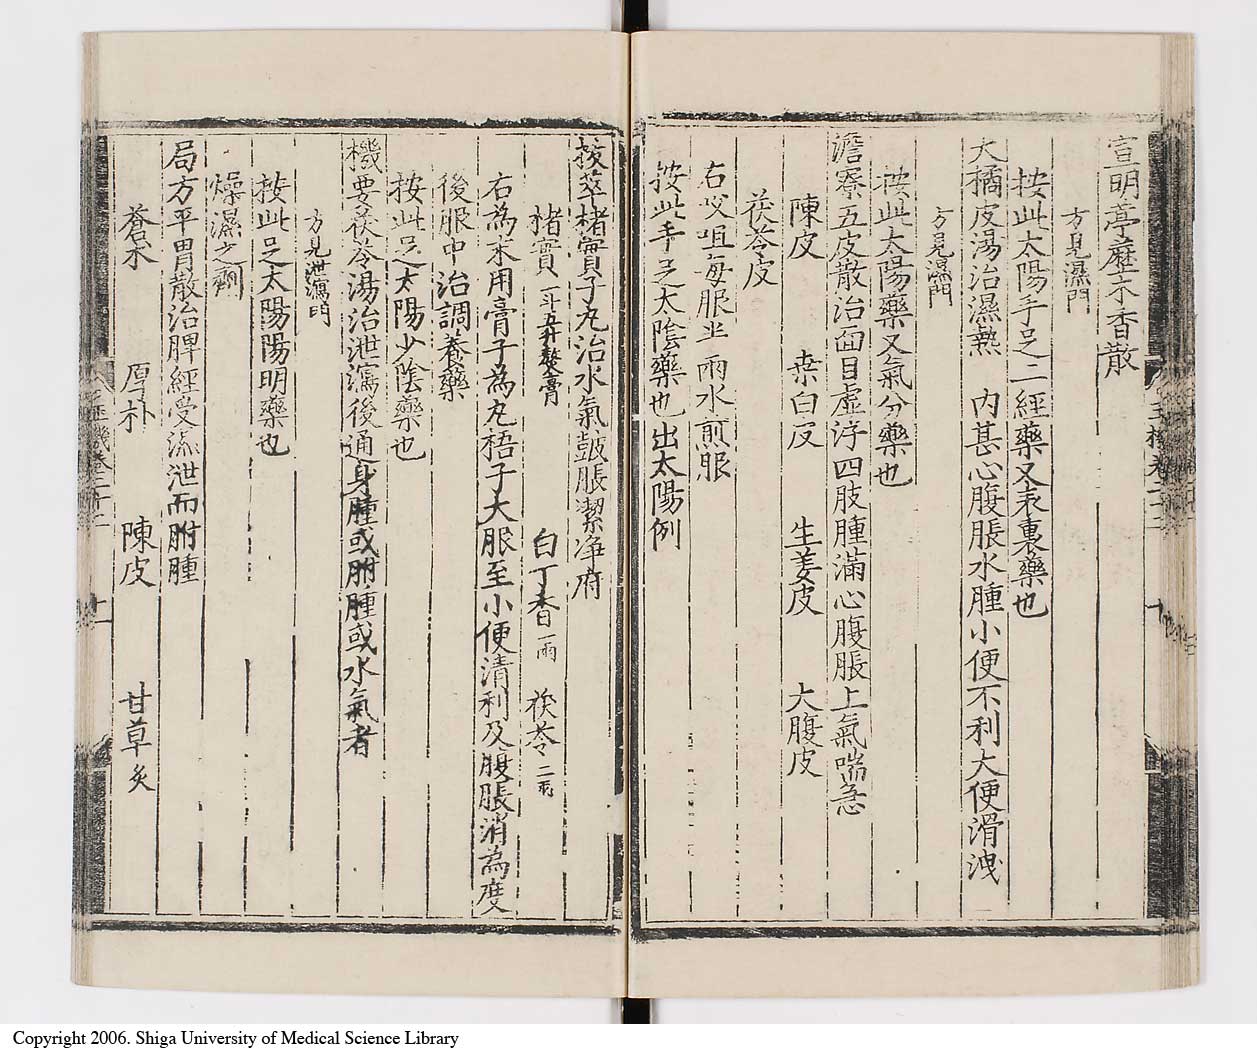 宣明葶藶木香散
方見濕門
按此太陽手足二經藥又表裏藥也
大橘皮湯治濕熱 内甚心腹脹水腫小便不利大便滑洩
方見濕門
按此太陽藥又氣分藥也
澹寮五皮散治面目虚浮四肢腫滿心腹脹上氣喘急
陳皮 桑白皮 生姜皮 大腹皮
茯苓皮
右㕮咀每服半兩水煎服
按此手足太陰藥也出太陽例
拔萃楮實子丸治水氣鼓脹潔净府
楮實一斗五升熬膏 白丁香一兩 茯苓二兩
右為末用膏子為丸梧子大服至小便清利及腹脹消為度
後服中治調養藥
按此足太陽少陰藥也
機要茯苓湯治泄瀉後通身腫或胕腫或水氣者
方見泄瀉門
按此足太陽陽明藥也
燥濕之劑
局方平胃散治脾經受濕泄而胕腫
蒼朮 厚朴 陳皮 甘草炙
玉機卷二十二
十一
Copyright 2006. Shiga University of Medical Science Library